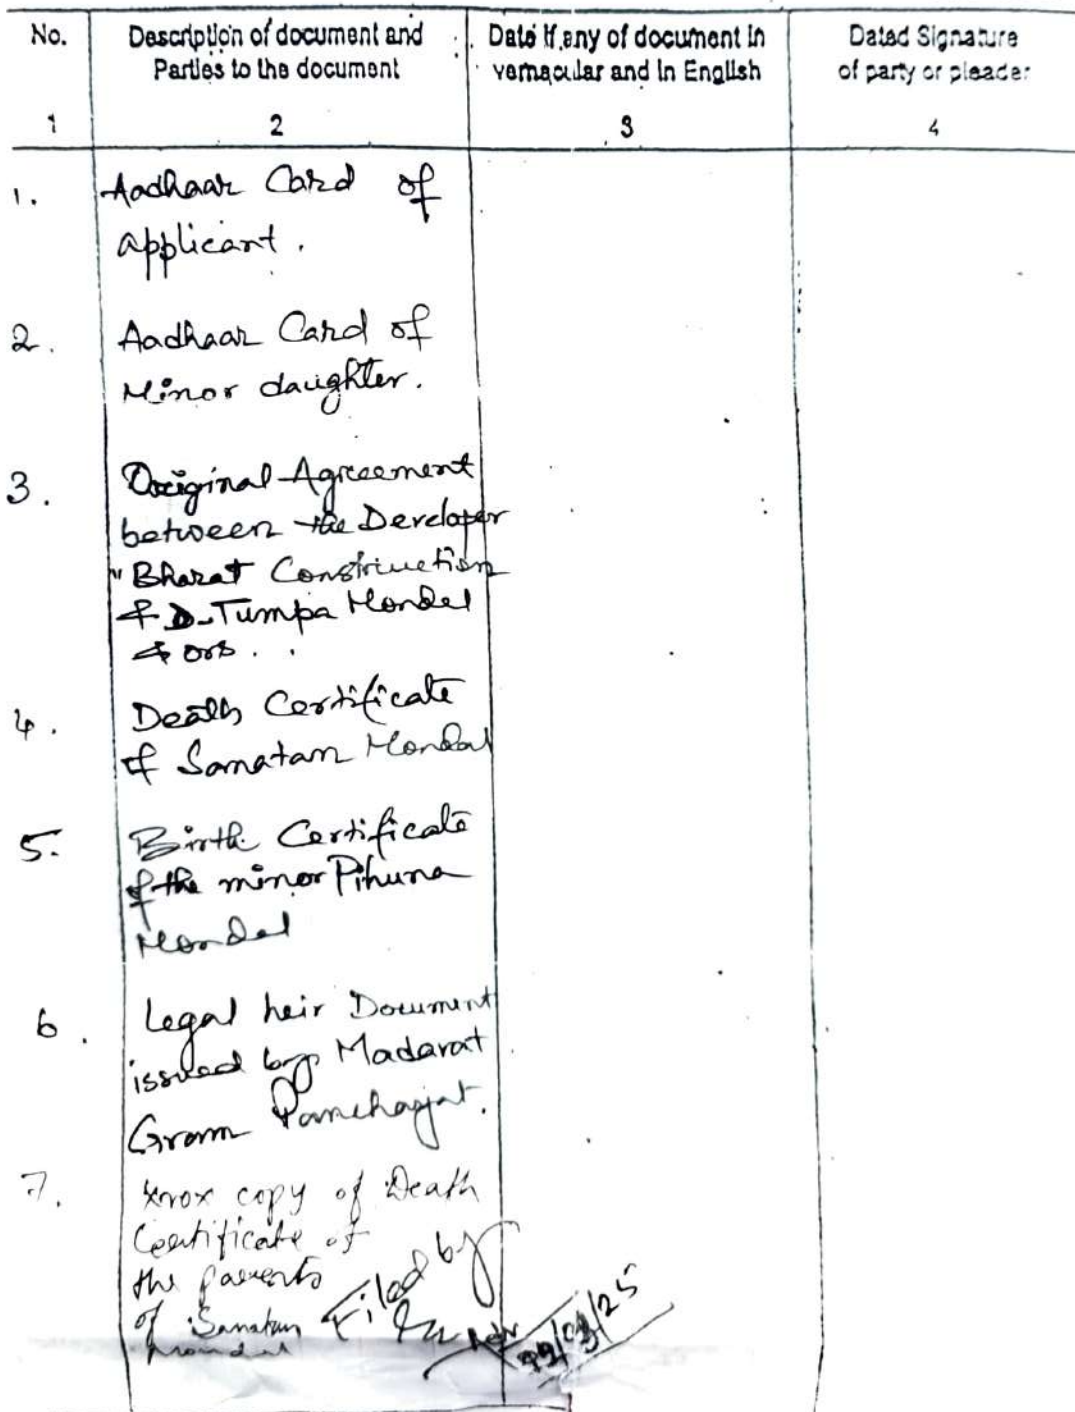 No. Description of document and Date if any of document in Dated Signature
Parties to the document vernacular and in English of party or pleader
1 2 3 4
1. Aadhaar Card of
applicant.
2. Aadhaar Card of
Minor daughter.
3. Original Agreement
between the Developer
"Bharat Construction
& Tumpa Mondal
& ors..
4. Death Certificate
of Sanatan Mondal
5. Birth Certificate
of the minor Pihuna
Mondal
6. Legal heir Document
issued by Madarat
Gram Panchayat.
7. xrox copy of Death
Certificate of
the parents
of Sanatan
Mondal
Filed by
Adv